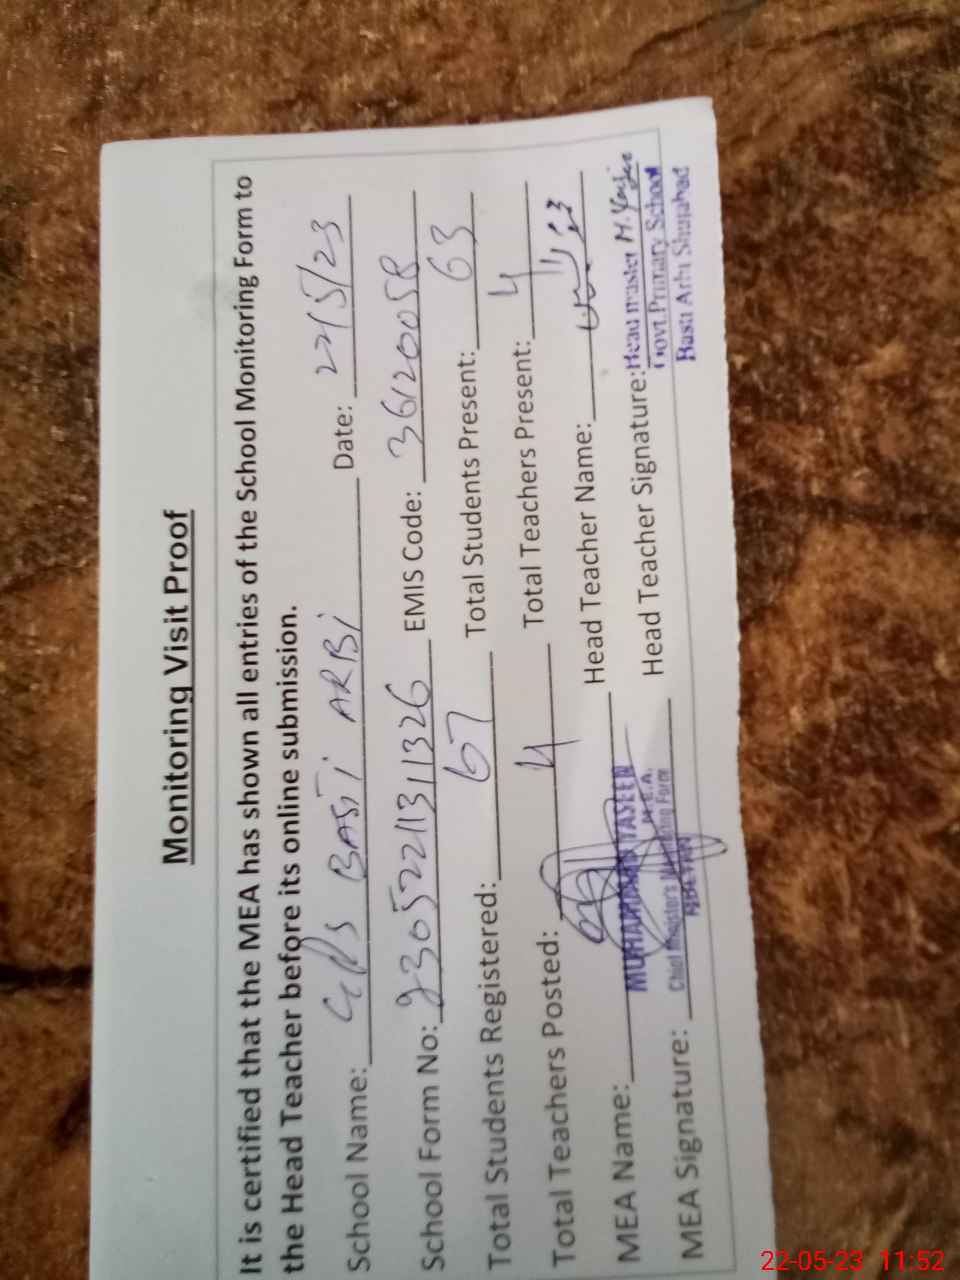 Monitoring Visit Proof
It is certified that the MEA has shown all entries of the School Monitoring Form to
the Head Teacher before its online submission.
School Name: GPS BASTI ARBI Date: 22/5/23
School Form No: 2305221131132G EMIS Code: 36120058
Total Students Registered: 67 Total Students Present: 63
Total Teachers Posted: 4 Total Teachers Present: 4
MEA Name: MUHAMMAD TASEEN Head Teacher Name:
M.E.A.
MEA Signature: Chief Minister's Monitoring Force Head Teacher Signature: Head master M. Yasin
Govt. Primary School
Basti Arbi Shujabad
22-05-23 11:52